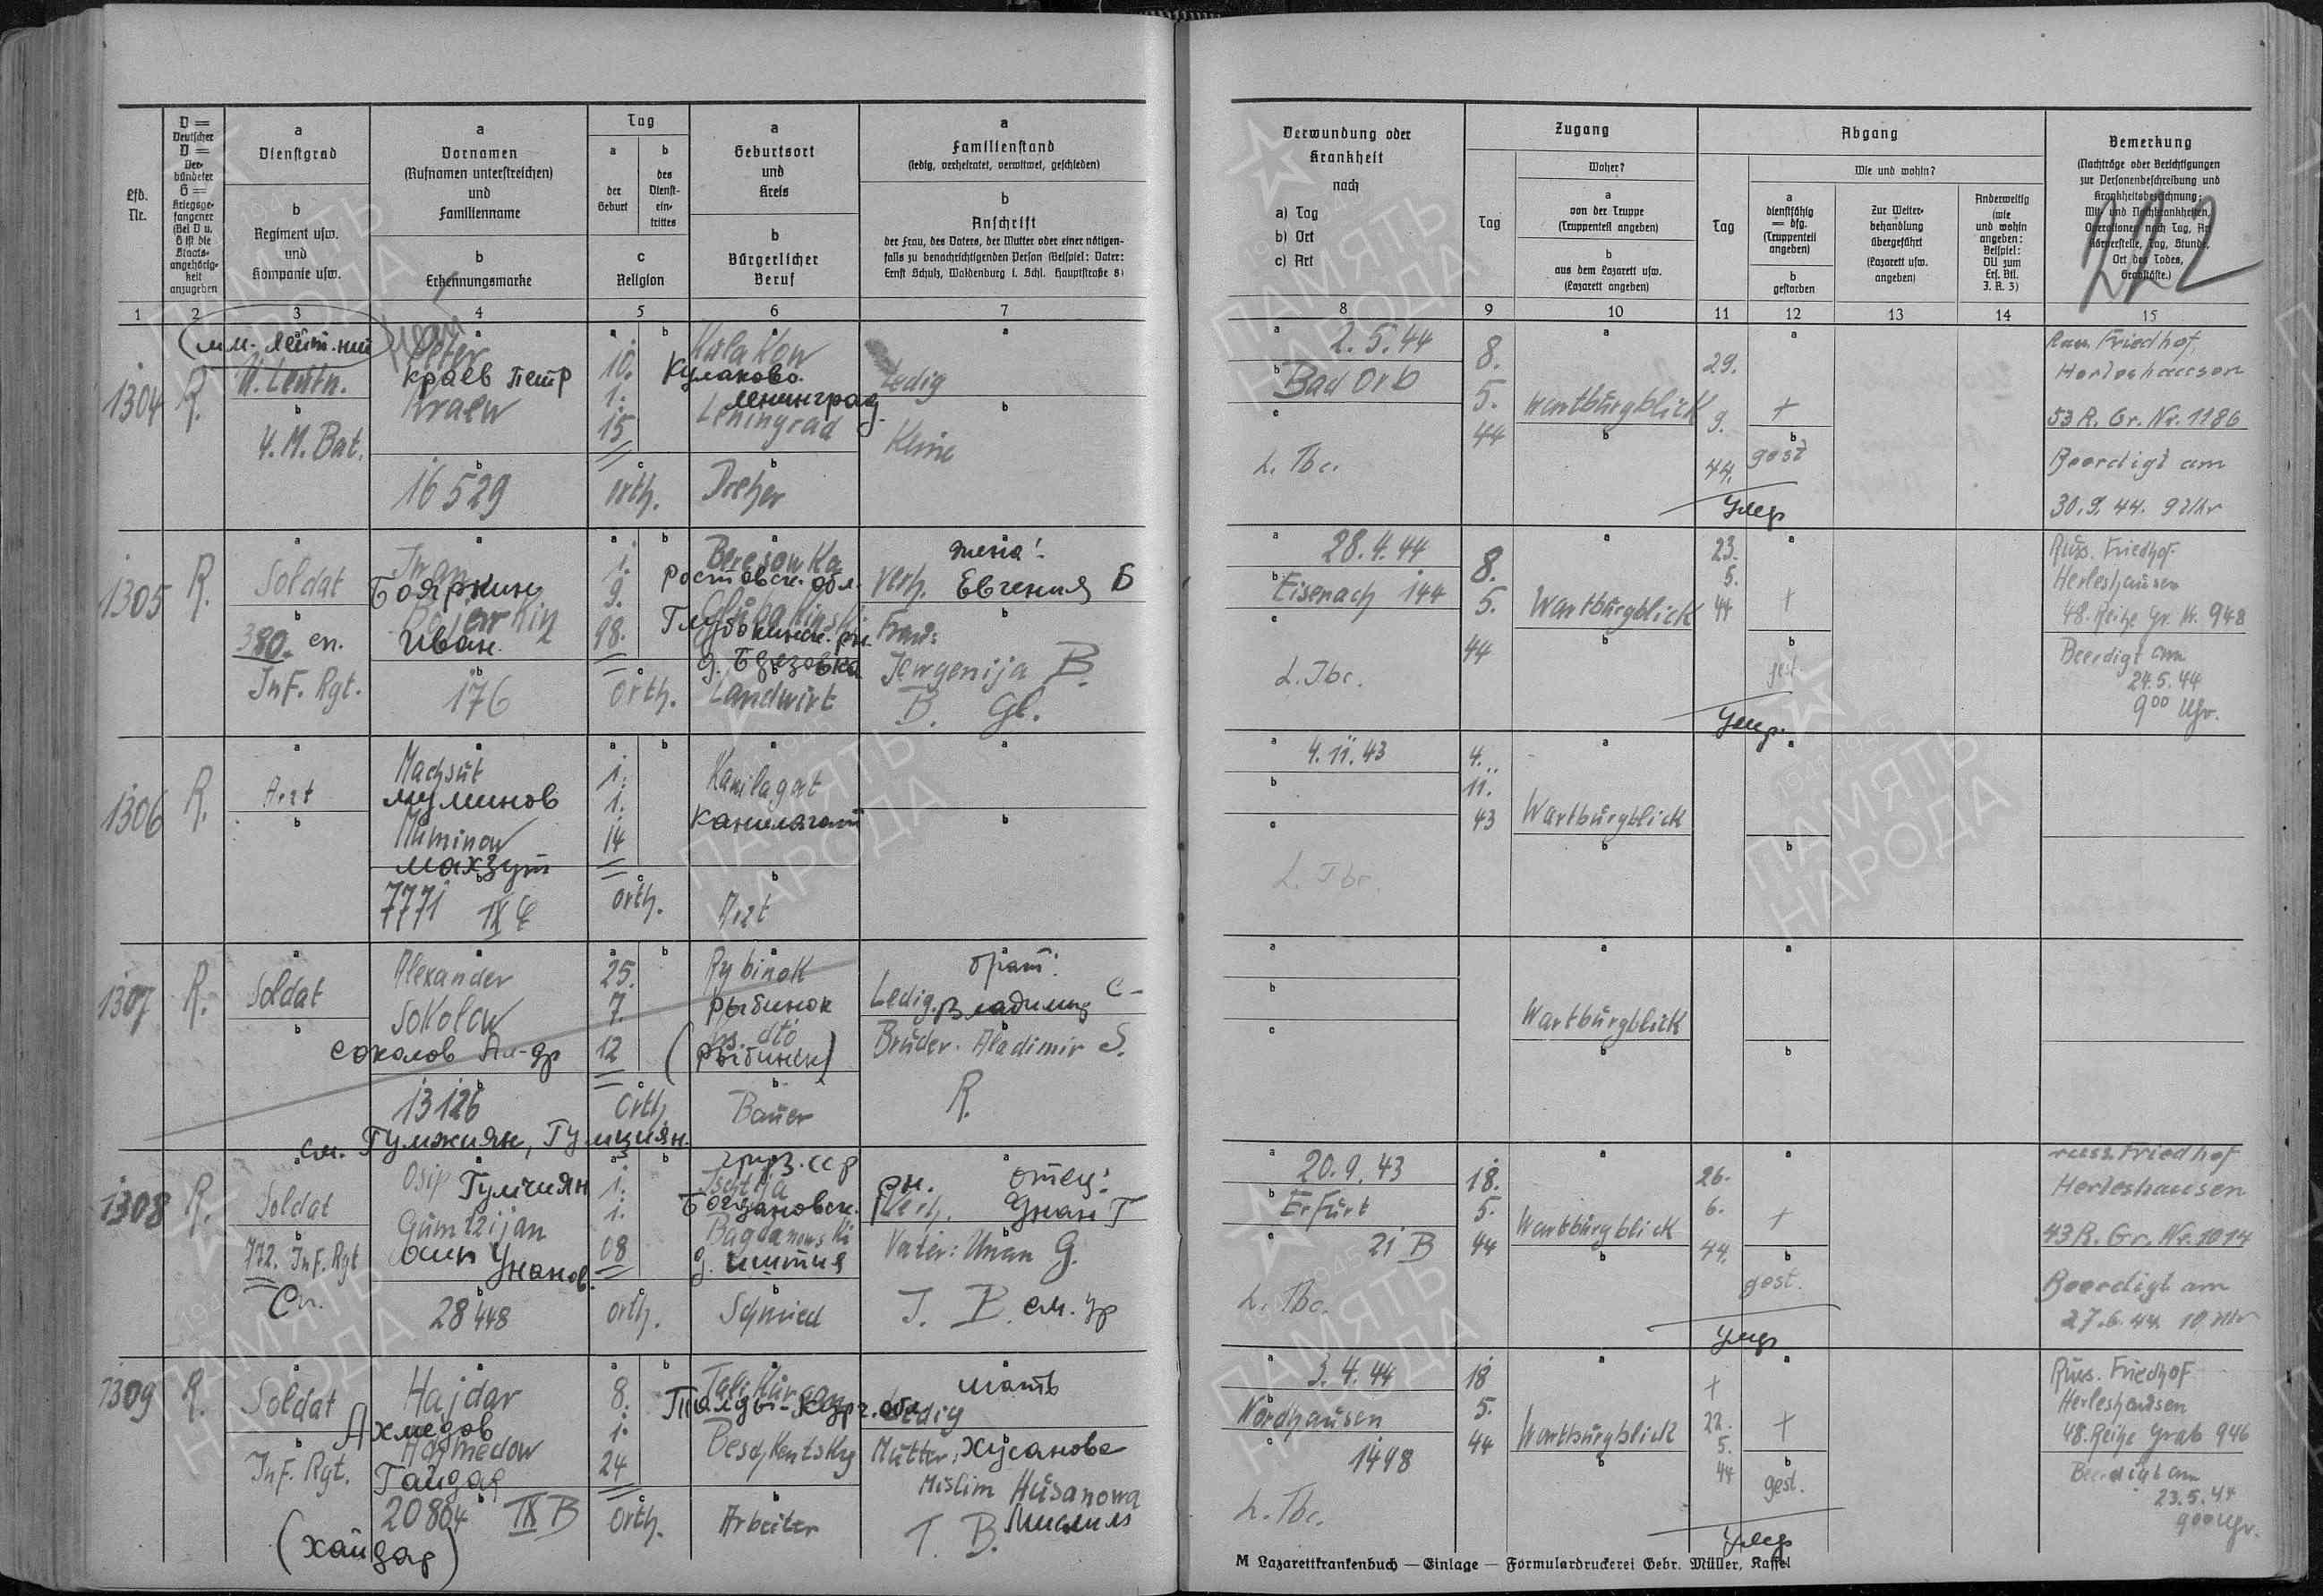 Lfd. Nr.
D = Deutscher
V = Verbündeter
G = Kriegsgefangener
(Bei V u. G ist die Staatsangehörigkeit anzugeben
a
Dienstgrad
b
Regiment usw.
und
Kompanie usw.
a
Vornamen
(Rufnamen unterstreichen)
und
Familienname
b
Erkennungsmarke
Tag
a
der Geburt
b
des Dienst-
ein-
trittes
c
Religion
a
Geburtsort
und
Kreis
b
Bürgerlicher
Beruf
a
Familienstand
(ledig, verheiratet, verwitwet, geschieden)
b
Anschrift
der Frau, des Vaters, der Mutter oder einer nötigen-
falls zu benachrichtigenden Person (Beispiel: Vater:
Ernst Schulz, Waldenburg i. Schl. Hauptstraße 8)
1 2 3 4 5 6 7
1304 R.
мл. лейт-нт
U. Leutn.
4. M. Bat.
Peter
Краев Петр
Kraew
16529
10.
1.
15
orth.
Kulakow
Кулаково
Ленинград.
Leningrad
Dreher
Ledig
Keine
1305 R.
Soldat
380. сп.
Inf. Rgt.
Iwan
Бояркин
Bojarkin
Иван
176
1.
9.
98.
orth.
Beresowka
Ростовск. обл.
Глубокинск. рн.
д. Березовка
Landwirt
жена:
Verh. Евгения Б
Frau:
Jewgenija B.
B. Gl.
1306 R.
Arzt
Machsut
Муминов
Muminow
Махзут
7771 IX C
1.
1.
14
orth.
Kanilagat
Канилагат
Arzt
1307 R.
Soldat
Alexander
Sokolow
Соколов Ал-др
13126
25.
7.
12
Orth.
Rybinok
Рыбинок
Ks. dto
(Рыбинск)
Bauer
брат:
Ledig. Владимир С-
Bruder. Aladimir S.
R.
см. Гумжиян, Гумциян.
1308 R.
Soldat
772. Inf. Rgt
Сп.
Osip Гумчиян
Gumtzijan
Осип Унанов.
28448
1.
1.
08
orth.
груз. сср
Богдановск. рн.
Bagdanowski
д. Иштия
Schmied
отец:
Verh. Унан Г
Vater: Unan G.
J. B. см. др
1309 R.
Soldat
Inf. Rgt.
Hajdar
Ахмедов
Achmedow
Гайдар
20804 IX B
(Хайдар)
8.
1.
24
orth.
Талды-Кург. обл.
Beschkentsky
Arbeiter
мать
Ledig
Mutter: Хусанова
Mislim Husanowa
T. B. Мислим
Verwundung oder
Krankheit
nach
a) Tag
b) Ort
c) Art
Zugang
Tag
Woher?
a
von der Truppe
(Truppenteil angeben)
b
aus dem Lazarett usw.
(Lazarett angeben)
Abgang
Tag
Wie und wohin?
a
dienstfähig
= dfg.
(Truppenteil
angeben)
b
gestorben
Zur Weiter-
behandlung
übergeführt
(Lazarett usw.
angeben)
Anderweitig
(wie
und wohin
angeben:
Beispiel:
DU zum
Ers. Btl.
J. R. 3)
Bemerkung
(Nachträge oder Berichtigungen
zur Personenbeschreibung und
Krankheitsbezeichnung:
Mit- und Nachkrankheiten,
Operationen nach Tag, Art
Körperstelle, Tag, Stunde,
Ort des Todes,
Grabstätte.)
222
8 9 10 11 12 13 14 15
2.5.44
Bad Orb
L. Tbc.
8.
5.
44
Wartburgblick
29.
9.
44.
+
gest
Умер
Russ. Friedhof
Herleshausen
53 R. Gr. Nr. 1186
Beerdigt am
30.9.44. 9 Uhr
28.4.44
Eisenach 144
L. Tbc.
8.
5.
44
Wartburgblick
23.
5.
44
+
gest
Умер.
Russ. Friedhof
Herleshausen
48. Reihe Gr. Nr. 948
Beerdigt am
24.5.44
9 00 Uhr.
4.11.43
L. Tbc.
4.
11.
43
Wartburgblick
Wartburgblick
20.9.43
Erfurt
21 B
L. Tbc.
18.
5.
44
Wartburgblick
26.
6.
44.
+
gest.
Умер
russ. Friedhof
Herleshausen
43 R. Gr. Nr. 1014
Beerdigt am
27.6.44 10 Uhr
3.4.44
Nordhausen
1498
L. Tbc.
18
5.
44
Wartburgblick
+
22.
5.
44
+
gest.
Умер
Russ. Friedhof
Herleshausen
48. Reihe Grab 946
Beerdigt am
23.5.44
9 00 Uhr.
M Lazarettkrankenbuch — Einlage — Formulardruckerei Gebr. Müller, Kassel
ПАМЯТЬ
НАРОДА
1941-1945